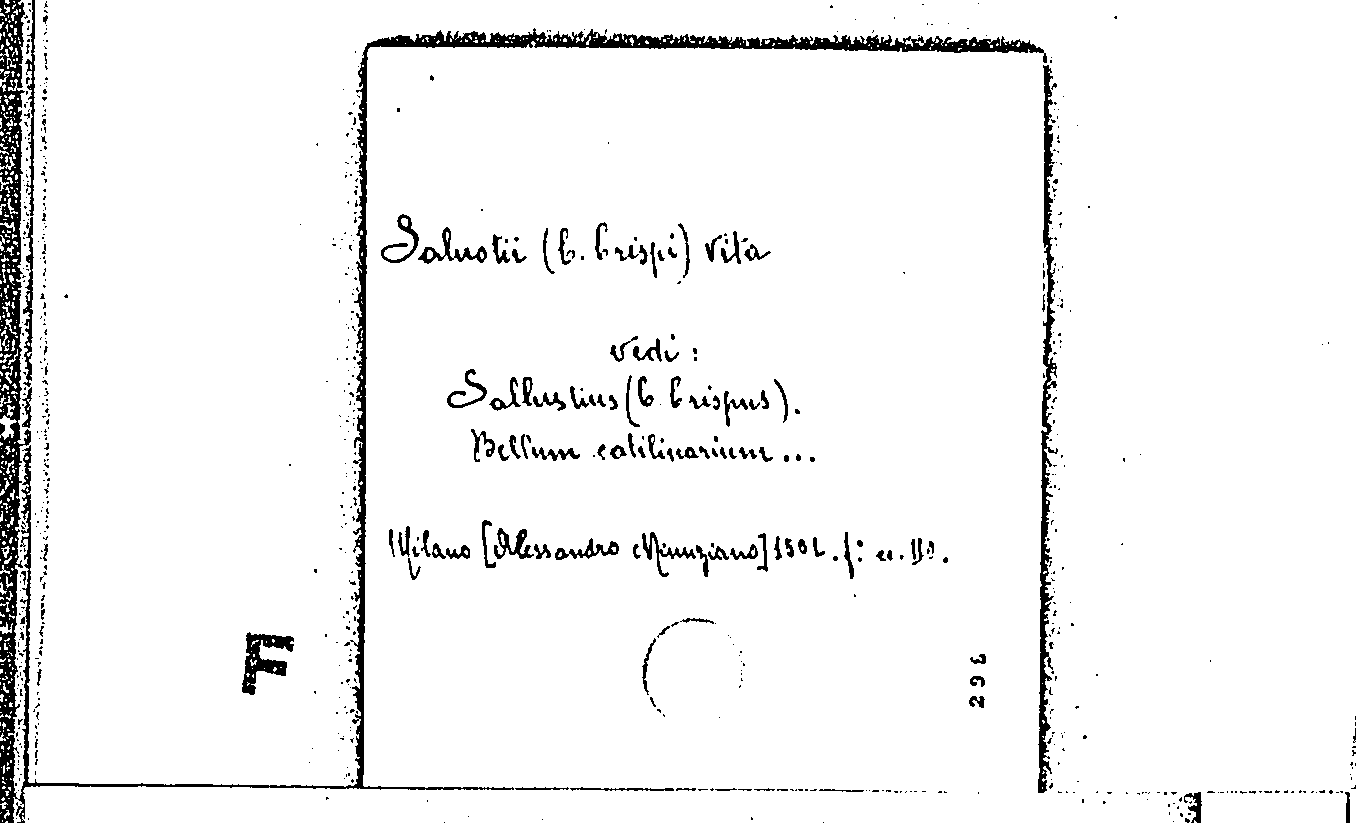 Salustii (C. Crispi) Vita
vedi:
Sallustius (C. Crispus).
Bellum catilinarium...
Milano [Alessandro Minuziano] 1501. f: cc.
F
296